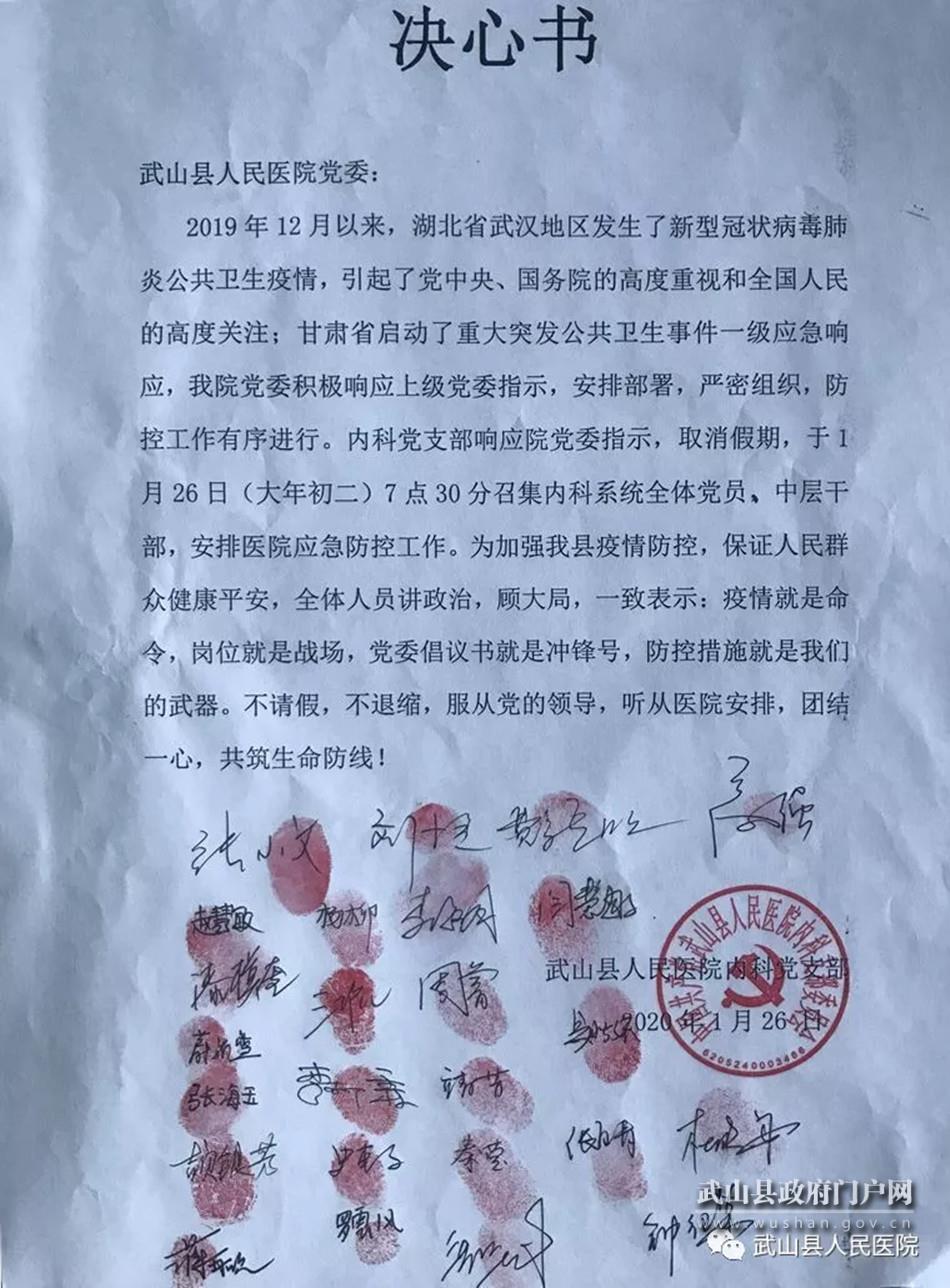 决心书
武山县人民医院党委：
2019年12月以来，湖北省武汉地区发生了新型冠状病毒肺
炎公共卫生疫情，引起了党中央、国务院的高度重视和全国人民
的高度关注；甘肃省启动了重大突发公共卫生事件一级应急响
应，我院党委积极响应上级党委指示，安排部署，严密组织，防
控工作有序进行。内科党支部响应院党委指示，取消假期，于1
月26日（大年初二）7点30分召集内科系统全体党员、中层干
部，安排医院应急防控工作。为加强我县疫情防控，保证人民群
众健康平安，全体人员讲政治，顾大局，一致表示：疫情就是命
令，岗位就是战场，党委倡议书就是冲锋号，防控措施就是我们
的武器。不请假，不退缩，服从党的领导，听从医院安排，团结
一心，共筑生命防线！
张小文
赵慧敏 闫慧敏
周蕾
武山县人民医院内科党支部
2020年1月26日
6205240003466
张海玉
秦莹
武山县政府门户网
www.wushan.gov.cn
武山县人民医院